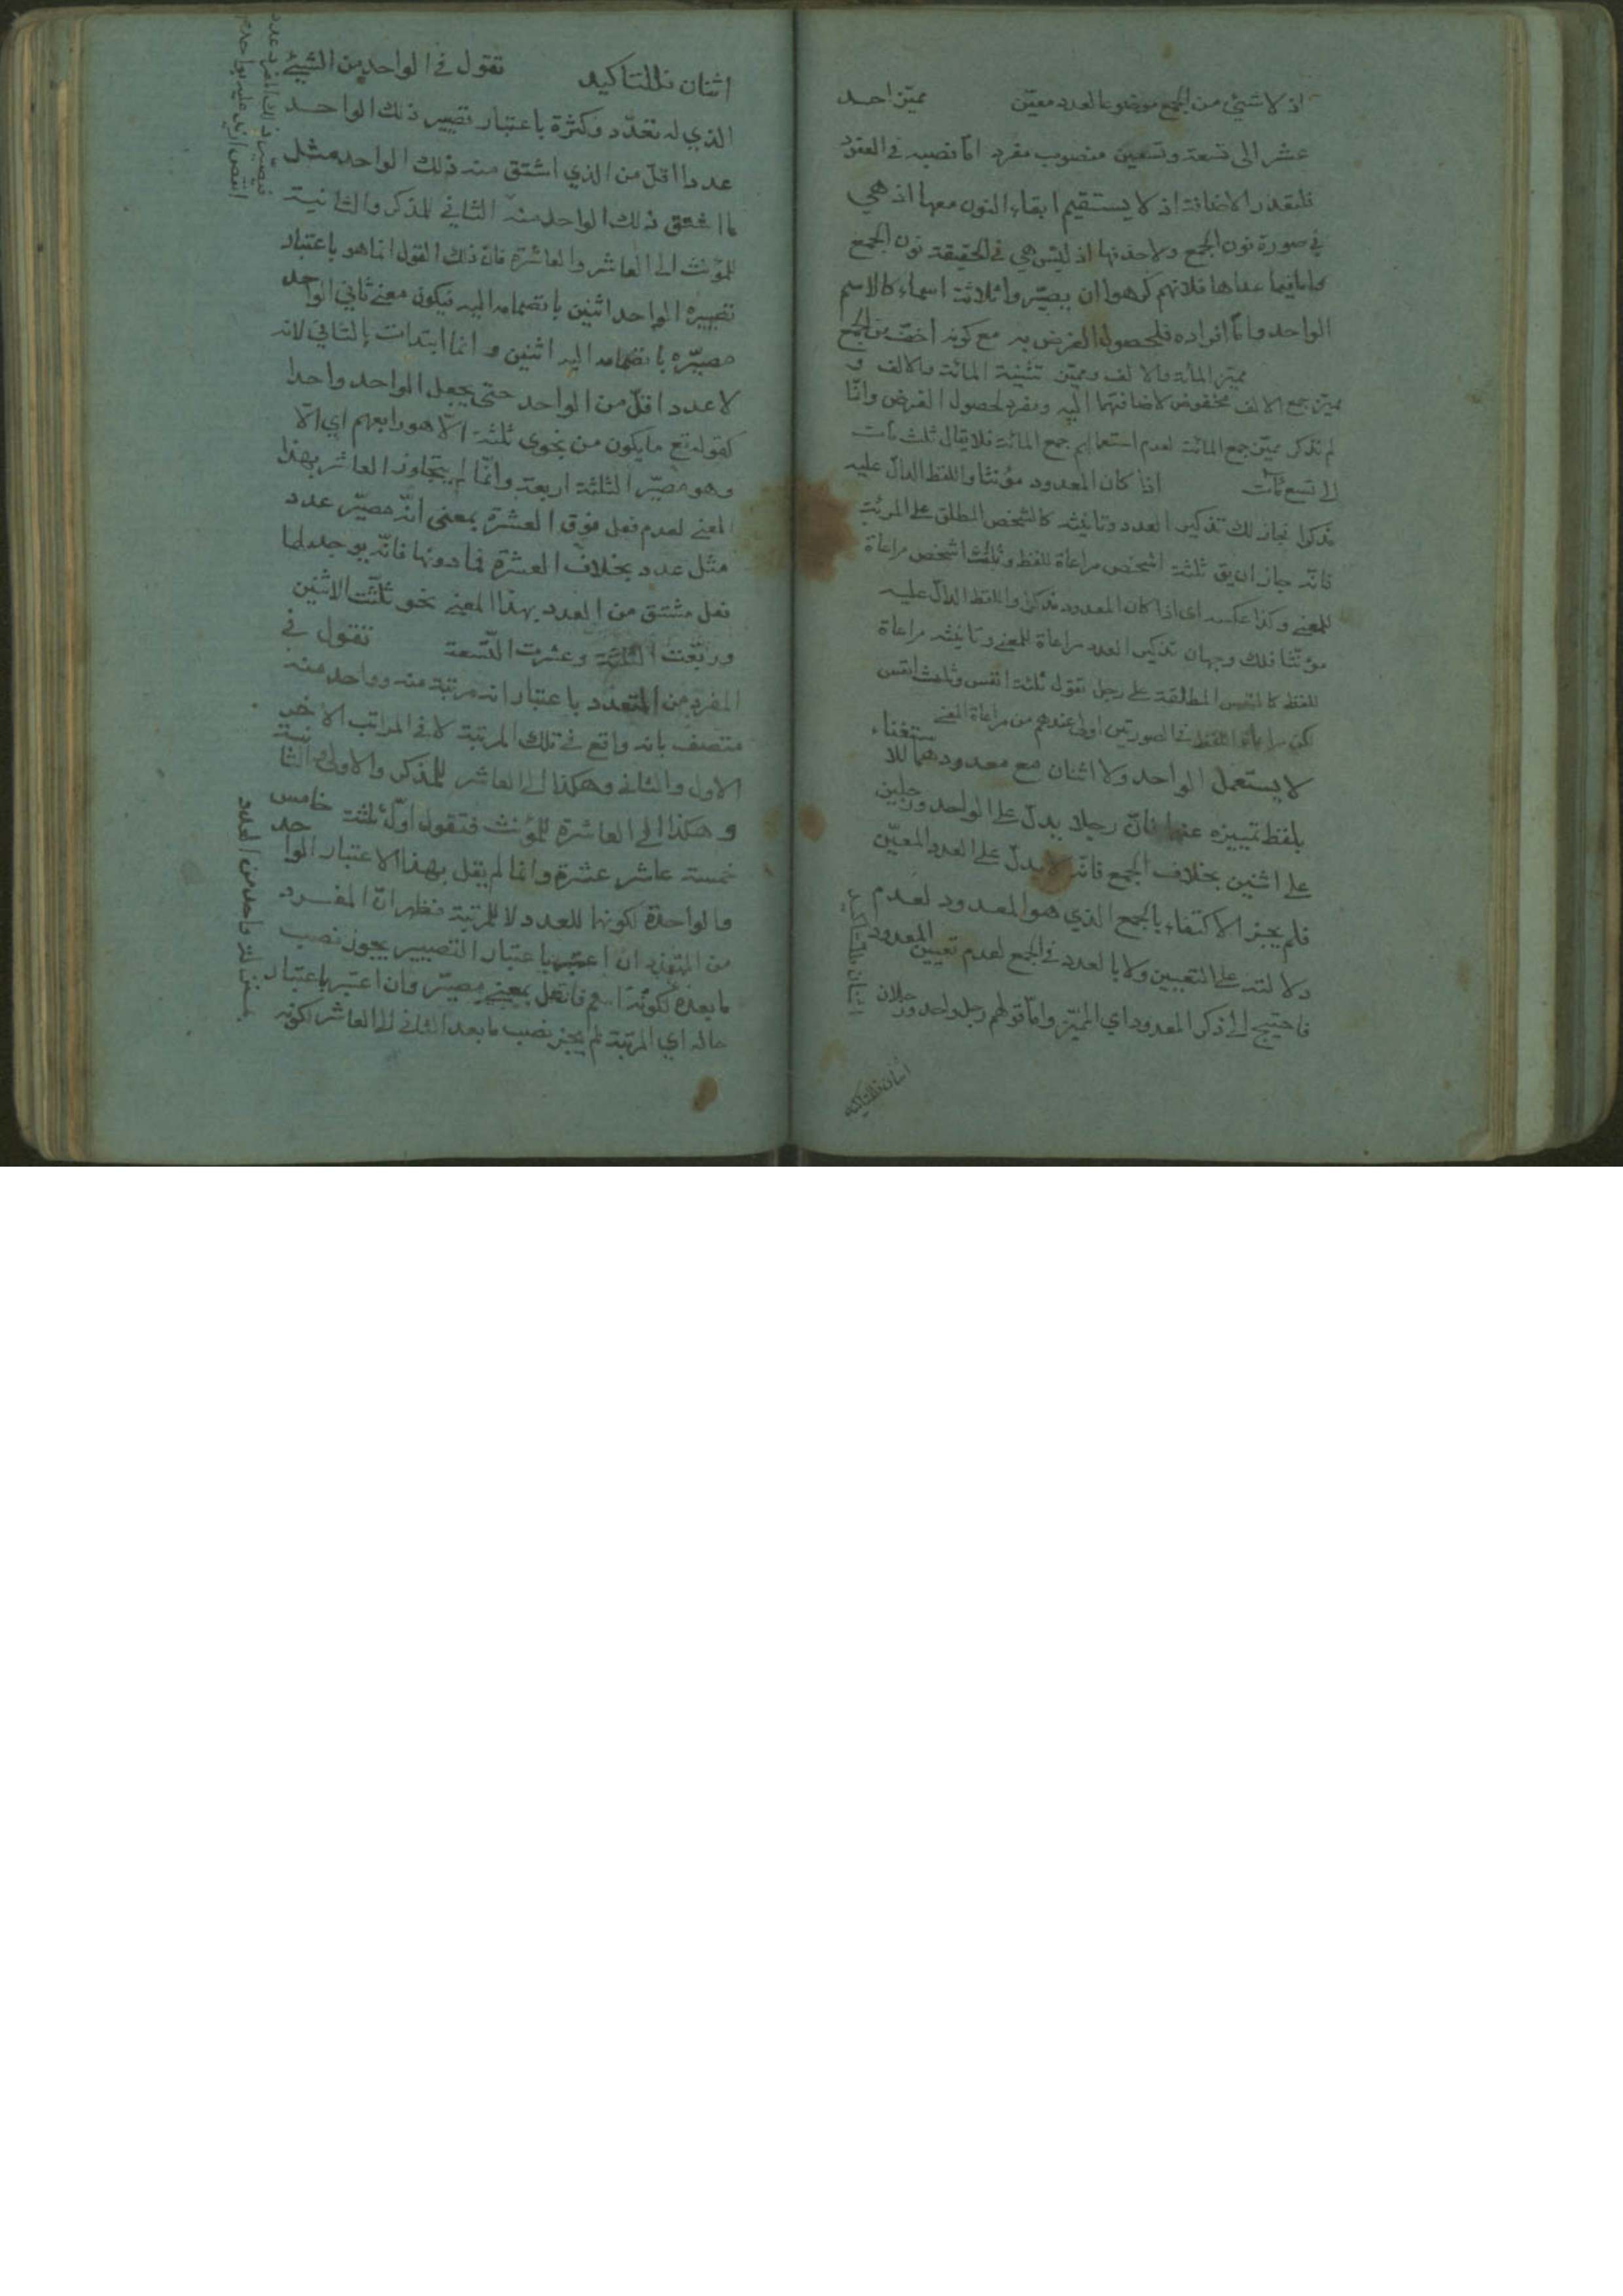 اذ لا شيئ من الجمع موضوعا لعدد معيّن مميّز احد
عشر الى تسعة وتسعين منصوب مفرد امّا نصبه في العقود
فلتعذر الاضافة اذ لا يستقيم ابقاء النون معها اذ هي
في صورة نون الجمع ولا حذفها اذ ليس هي في الحقيقة نون الجمع
وامّا فيما عداها فلانهم كرهوا ان يصيّروا ثلاثة اسماء كالاسم
الواحد وامّا افراده فلحصول الغرض به مع كونه اخفّ من الجمع
مميّز المائة والالف ومميّز تثنية المائة والالف و
مميّز جمع الالف مخفوض لاضافتهما اليه ومفرد لحصول الغرض وانّما
لم تذكر مميّز جمع المائة لعدم استعمالهم جمع المائة فلا يقال ثلث مآت
الى تسع مآت اذا كان المعدود مؤنثا واللفظ الدالّ عليه
مذكرا فجاز لك تذكير العدد وتانيثه كالشخص المطلق على المرئة
فانّه جاز ان يق ثلثة اشخص مراعاة للفظ وثلث اشخص مراعاة
للمعنى وكذا عكسه اى اذا كان المعدود مذكرا واللفظ الدالّ عليه
مؤنّثا فلك وجهان تذكير العدد مراعاة للمعنى وتانيثه مراعاة
للفظ كالنفس المطلقة على رجل تقول ثلثة انفس وثلث انفس
لكن مراعاة اللفظ في الصورتين اولى عندهم من مراعاة المعنى
لا يستعمل الواحد ولا اثنان مع معدودهما للاستغناء
بلفظ تمييزه عنها فانّ رجلا يدلّ على الواحد ورجلين
على اثنين بخلاف الجمع فانّه لا يدلّ على العدد المعيّن
فلم يجز الاكتفاء بالجمع الذي هو المعدود لعدم
دلالته على التعيين ولا بالعدد في الجمع لعدم تعيين المعدود
فاحتيج الى ذكر المعدود اي المميّز وامّا قولهم رجل واحد ورجلان
اثنان فللتاكيد
اثنان فللتاكيد
اثنان فللتاكيد تقول في الواحد من الشيئ
الذي له تعدّد وكثرة باعتبار تصيير ذلك الواحد
عددا اقلّ من الذي اشتق منه ذلك الواحد مثل
ما اشتق ذلك الواحد منه الثاني للمذكر والثانية
للمؤنث الى العاشر والعاشرة فانّ ذلك القول انما هو باعتبار
تصييره الواحد اثنين بانضمامه اليه فيكون معنى ثاني الواحد
مصيّره بانضمامه اليه اثنين وانما ابتدات بالثاني لانه
لا عدد اقلّ من الواحد حتى يجعل الواحد واحدا
كقوله تع ما يكون من نجوى ثلثة الّا هو رابعهم اي الّا
وهو مصيّر الثلثة اربعة وانّما لم يتجاوز العاشر بهذا
المعنى لعدم فعل فوق العشرة بمعنى انّه مصيّر عدد
مثل عدد بخلاف العشرة فما دونها فانّه يوجد لها
فعل مشتق من العدد بهذا المعنى نحو ثلّثت الاثنين
وربّعت الثلثة وعشرت التّسعة تقول في
المفرد من المتعدد باعتبار انه مرتبة منه وواحد منه
متصف بانه واقع في تلك المرتبة لا في المراتب الاخر
الاول والثاني وهكذا الى العاشر للمذكر والاولى والثانية
وهكذا الى العاشرة للمؤنث فتقول اوّل ثلثة خامس
خمسة عاشر عشرة وانما لم يقل بهذا الاعتبار الواحد
والواحدة لكونها للعدد لا للمرتبة فظهر انّ المفرد
من المتعدد ان اعتبر باعتبار التصيير يجوز نصب
ما بعده لكونه اسم فاعل بمعنى مصيّر وان اعتبر باعتبار
حاله اي المرتبة لم يجز نصب ما بعد الثاني الى العاشر لكونه